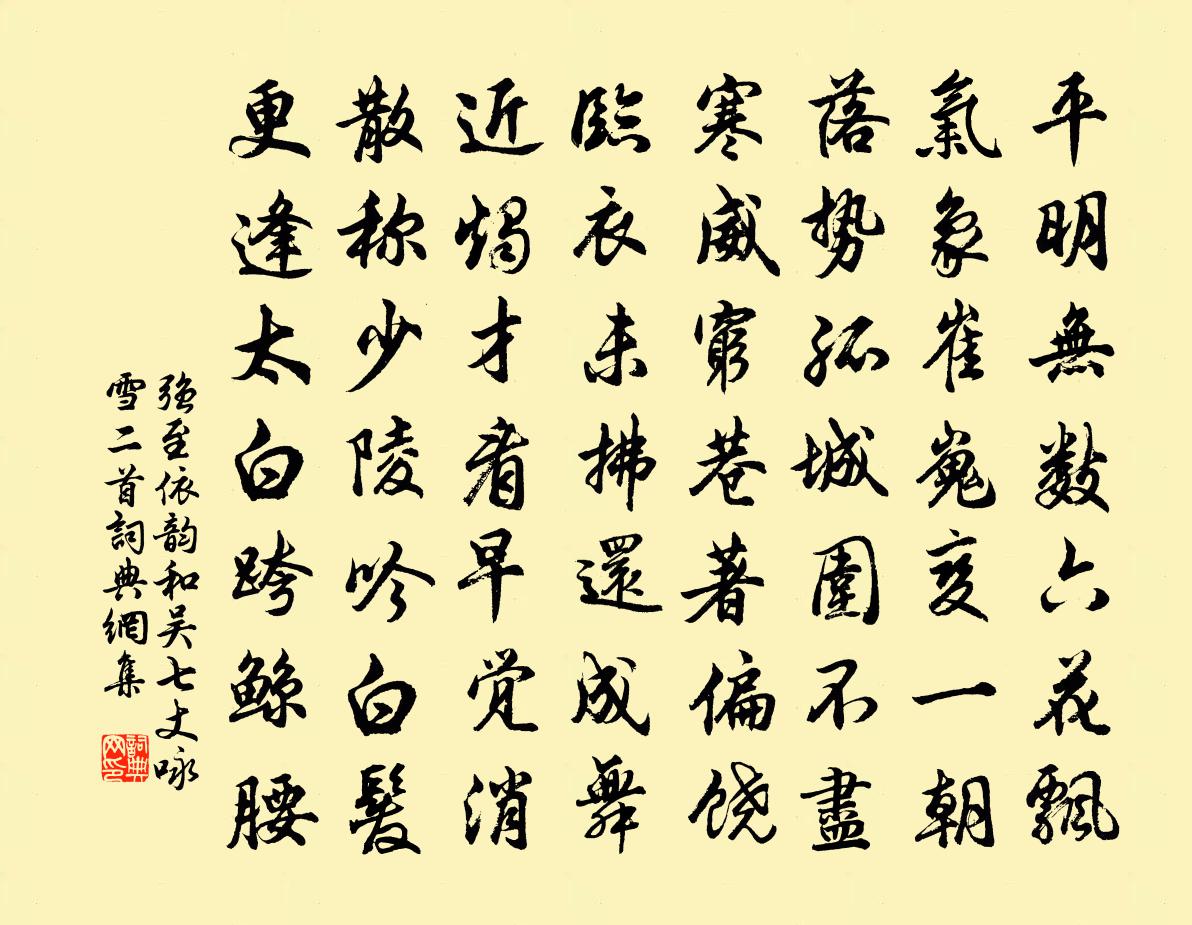 平明無數六花飄
氣象崔嵬变一朝
落势孤城圍不盡
寒威窮巷著偏饶
臨衣未拂還成舞
近燭才看早觉消
散称少陵吟白髮
更逢太白跨鲸腰
强至依韵和吴七丈咏
雪二首詞典網集
詞典
网印